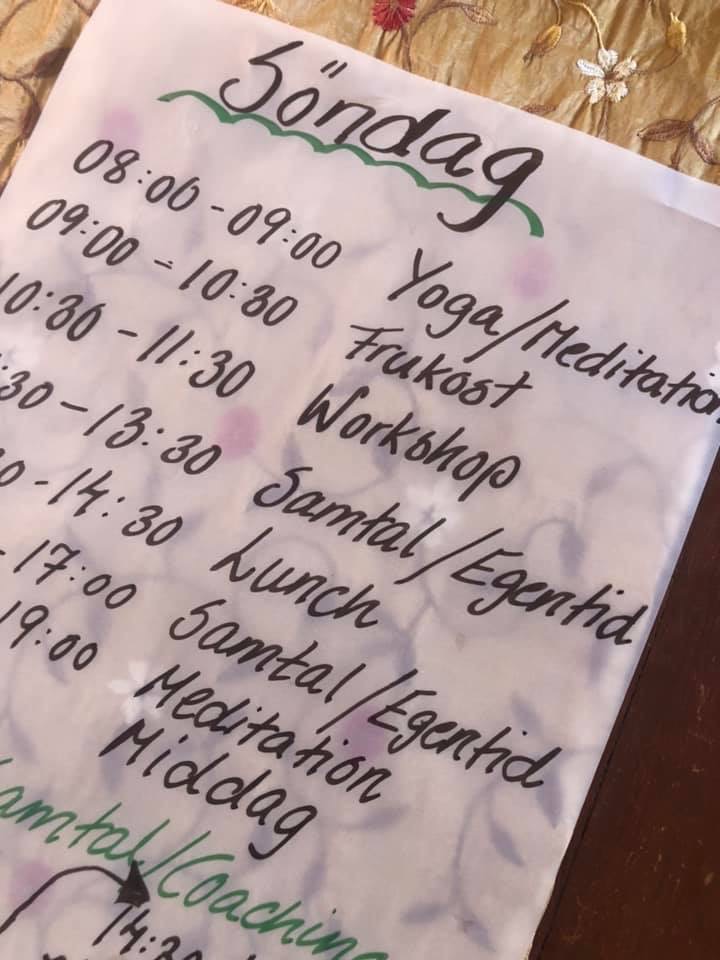 Söndag
08:00-09:00 Yoga/Meditation
09:00-10:30 Frukost
10:30-11:30 Workshop
:30-13:30 Samtal/Egentid
0-14:30 Lunch
-17:00 Samtal/Egentid
19:00 Meditation
Middag
Samtal/Coaching
14:30